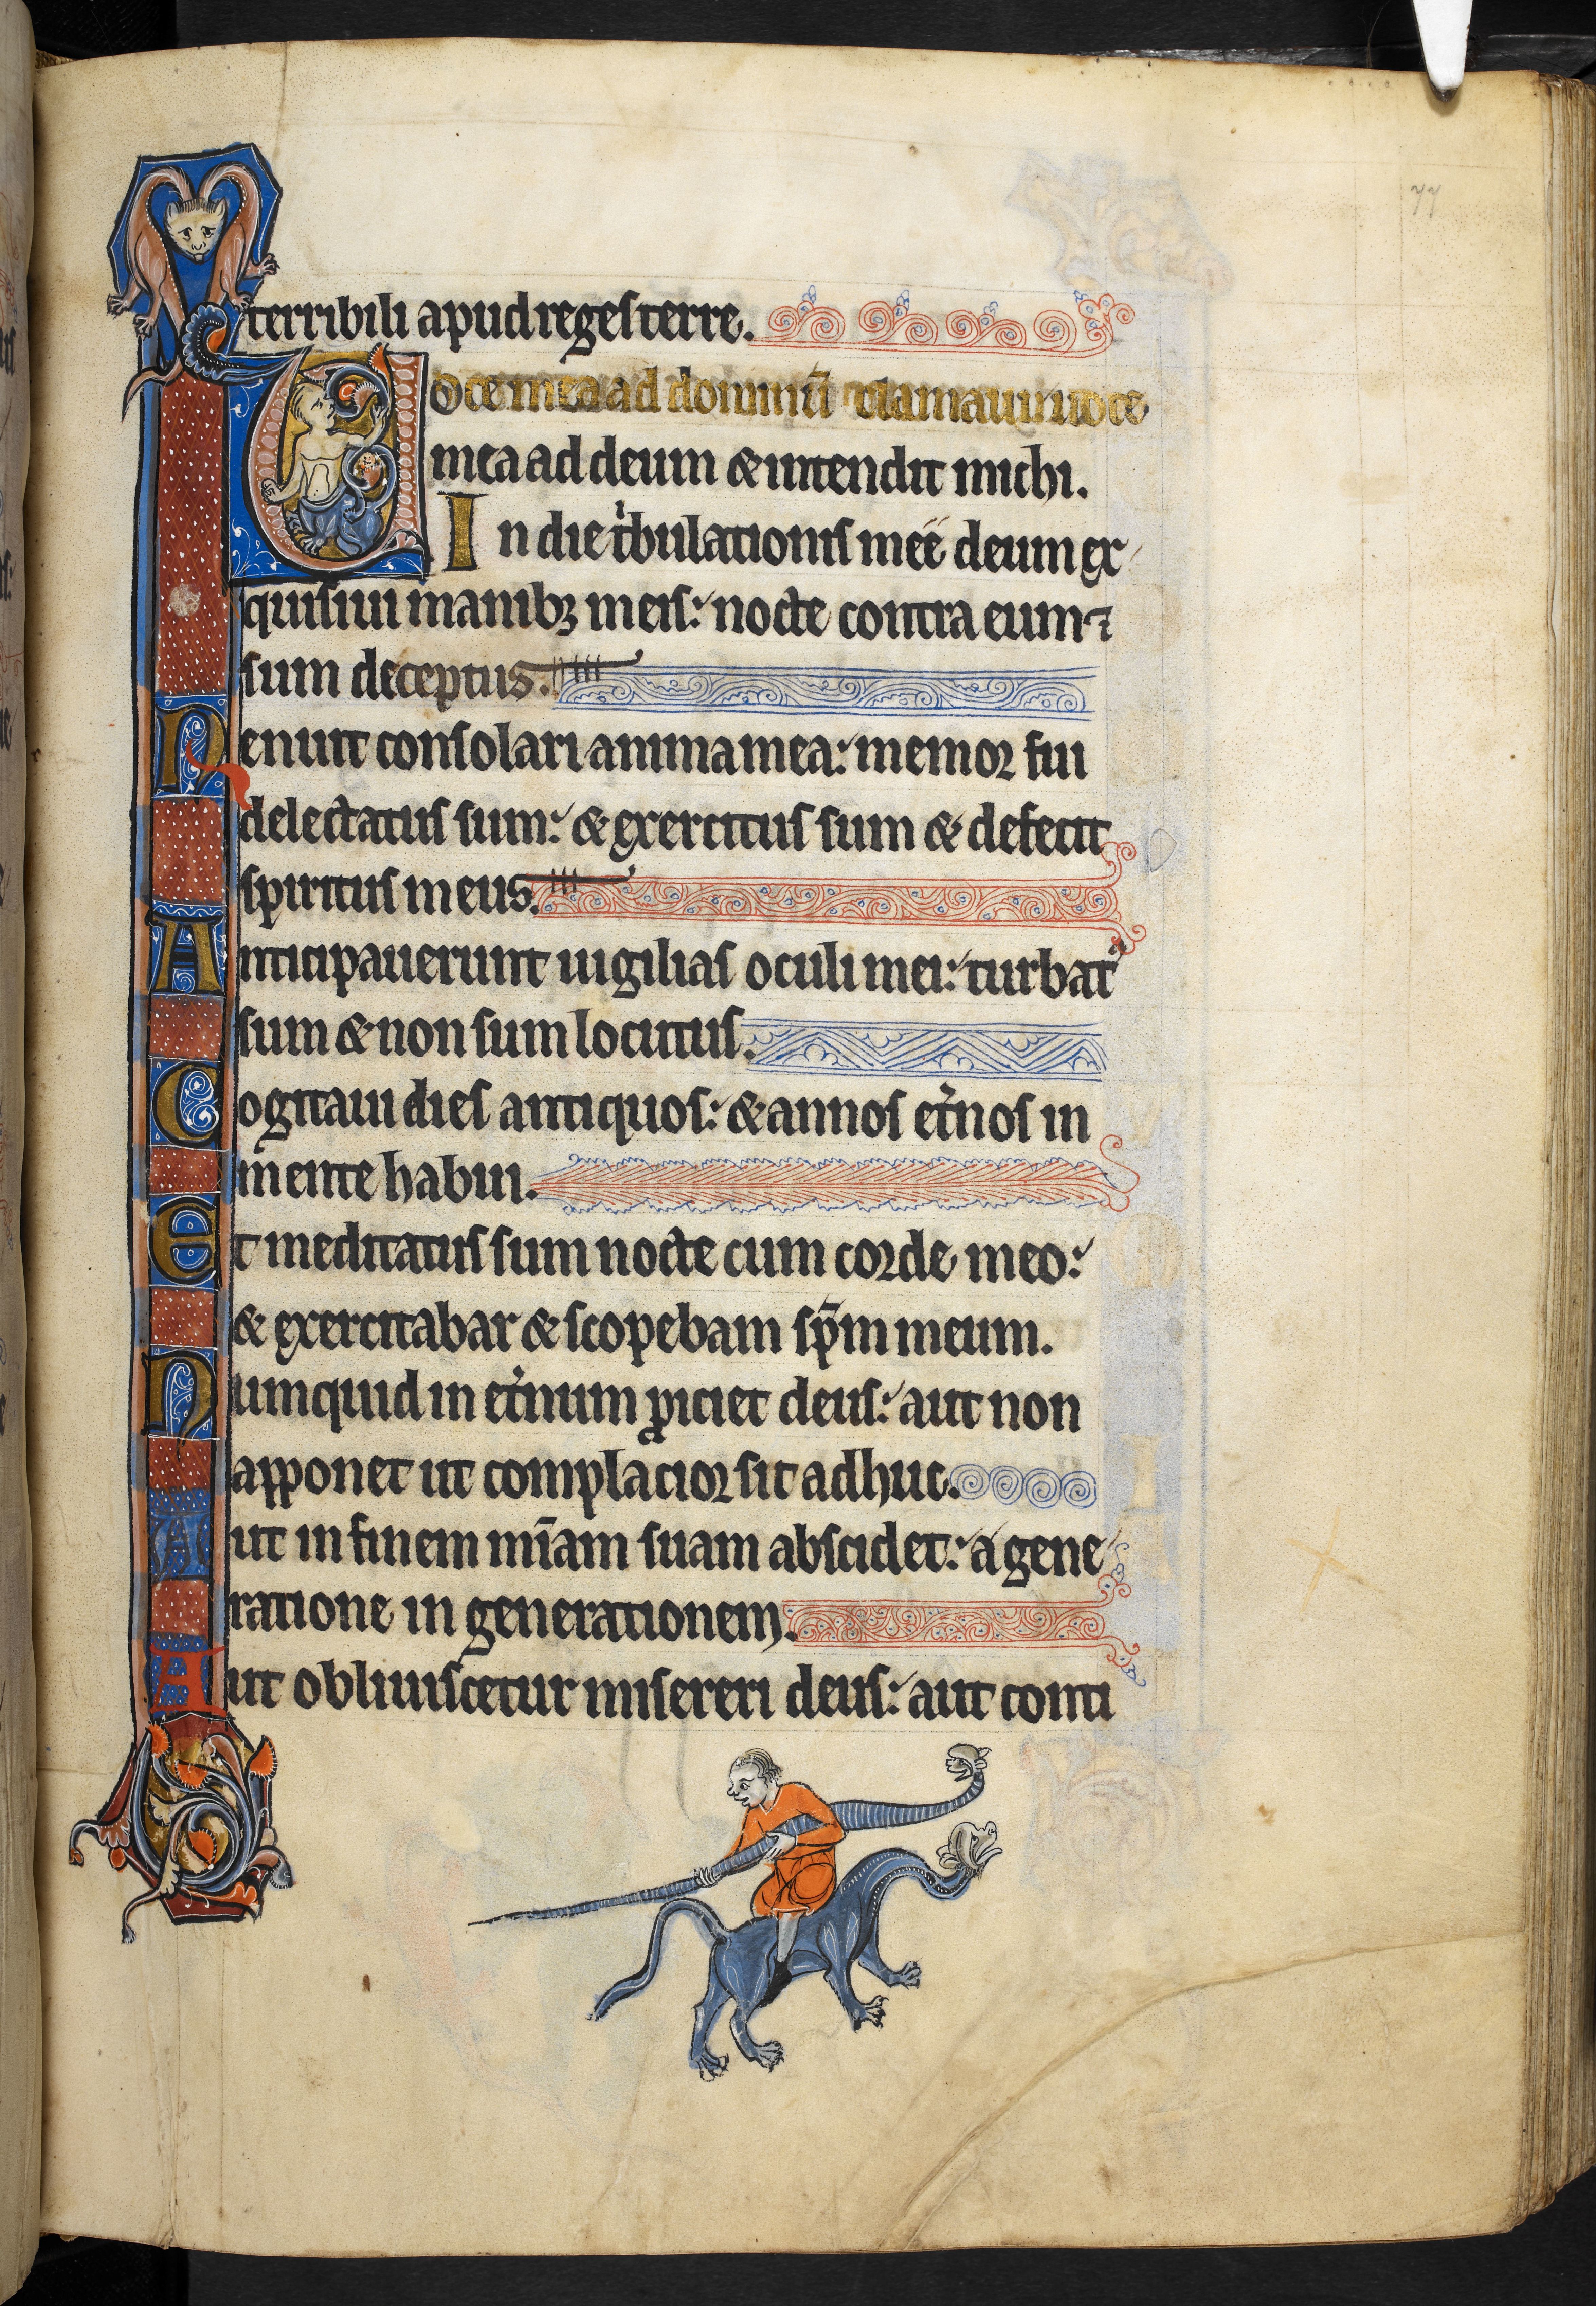 77
terribili apud reges terre.
Uoce mea ad dominū clamaui uoce
mea ad deum & intendit michi.
In die tͥbulationis meę deum ex
quisiui manibꝫ meis: nocte contra eum ⁊
sum deceptus.
Nenuit consolari anima mea: memor fui
delectatus sum: & exercitus sum & defecit
spiritus meus.
Anticipauerunt uigilias oculi mei: turbatꝰ
sum & non sum locutus.
Cogitaui dies antiquos: & annos et̾nos in
mente habui.
Et meditatus sum nocte cum corde meo:
& exercitabar & scopebam sp̄m meum.
Numquid in et̾num ꝓiciet deus: aut non
apponet ut complacior sit adhuc.
Aut in finem mīam suam abscidet: a gene
ratione in generationem.
Aut obliuiscetur misereri deus: aut conti